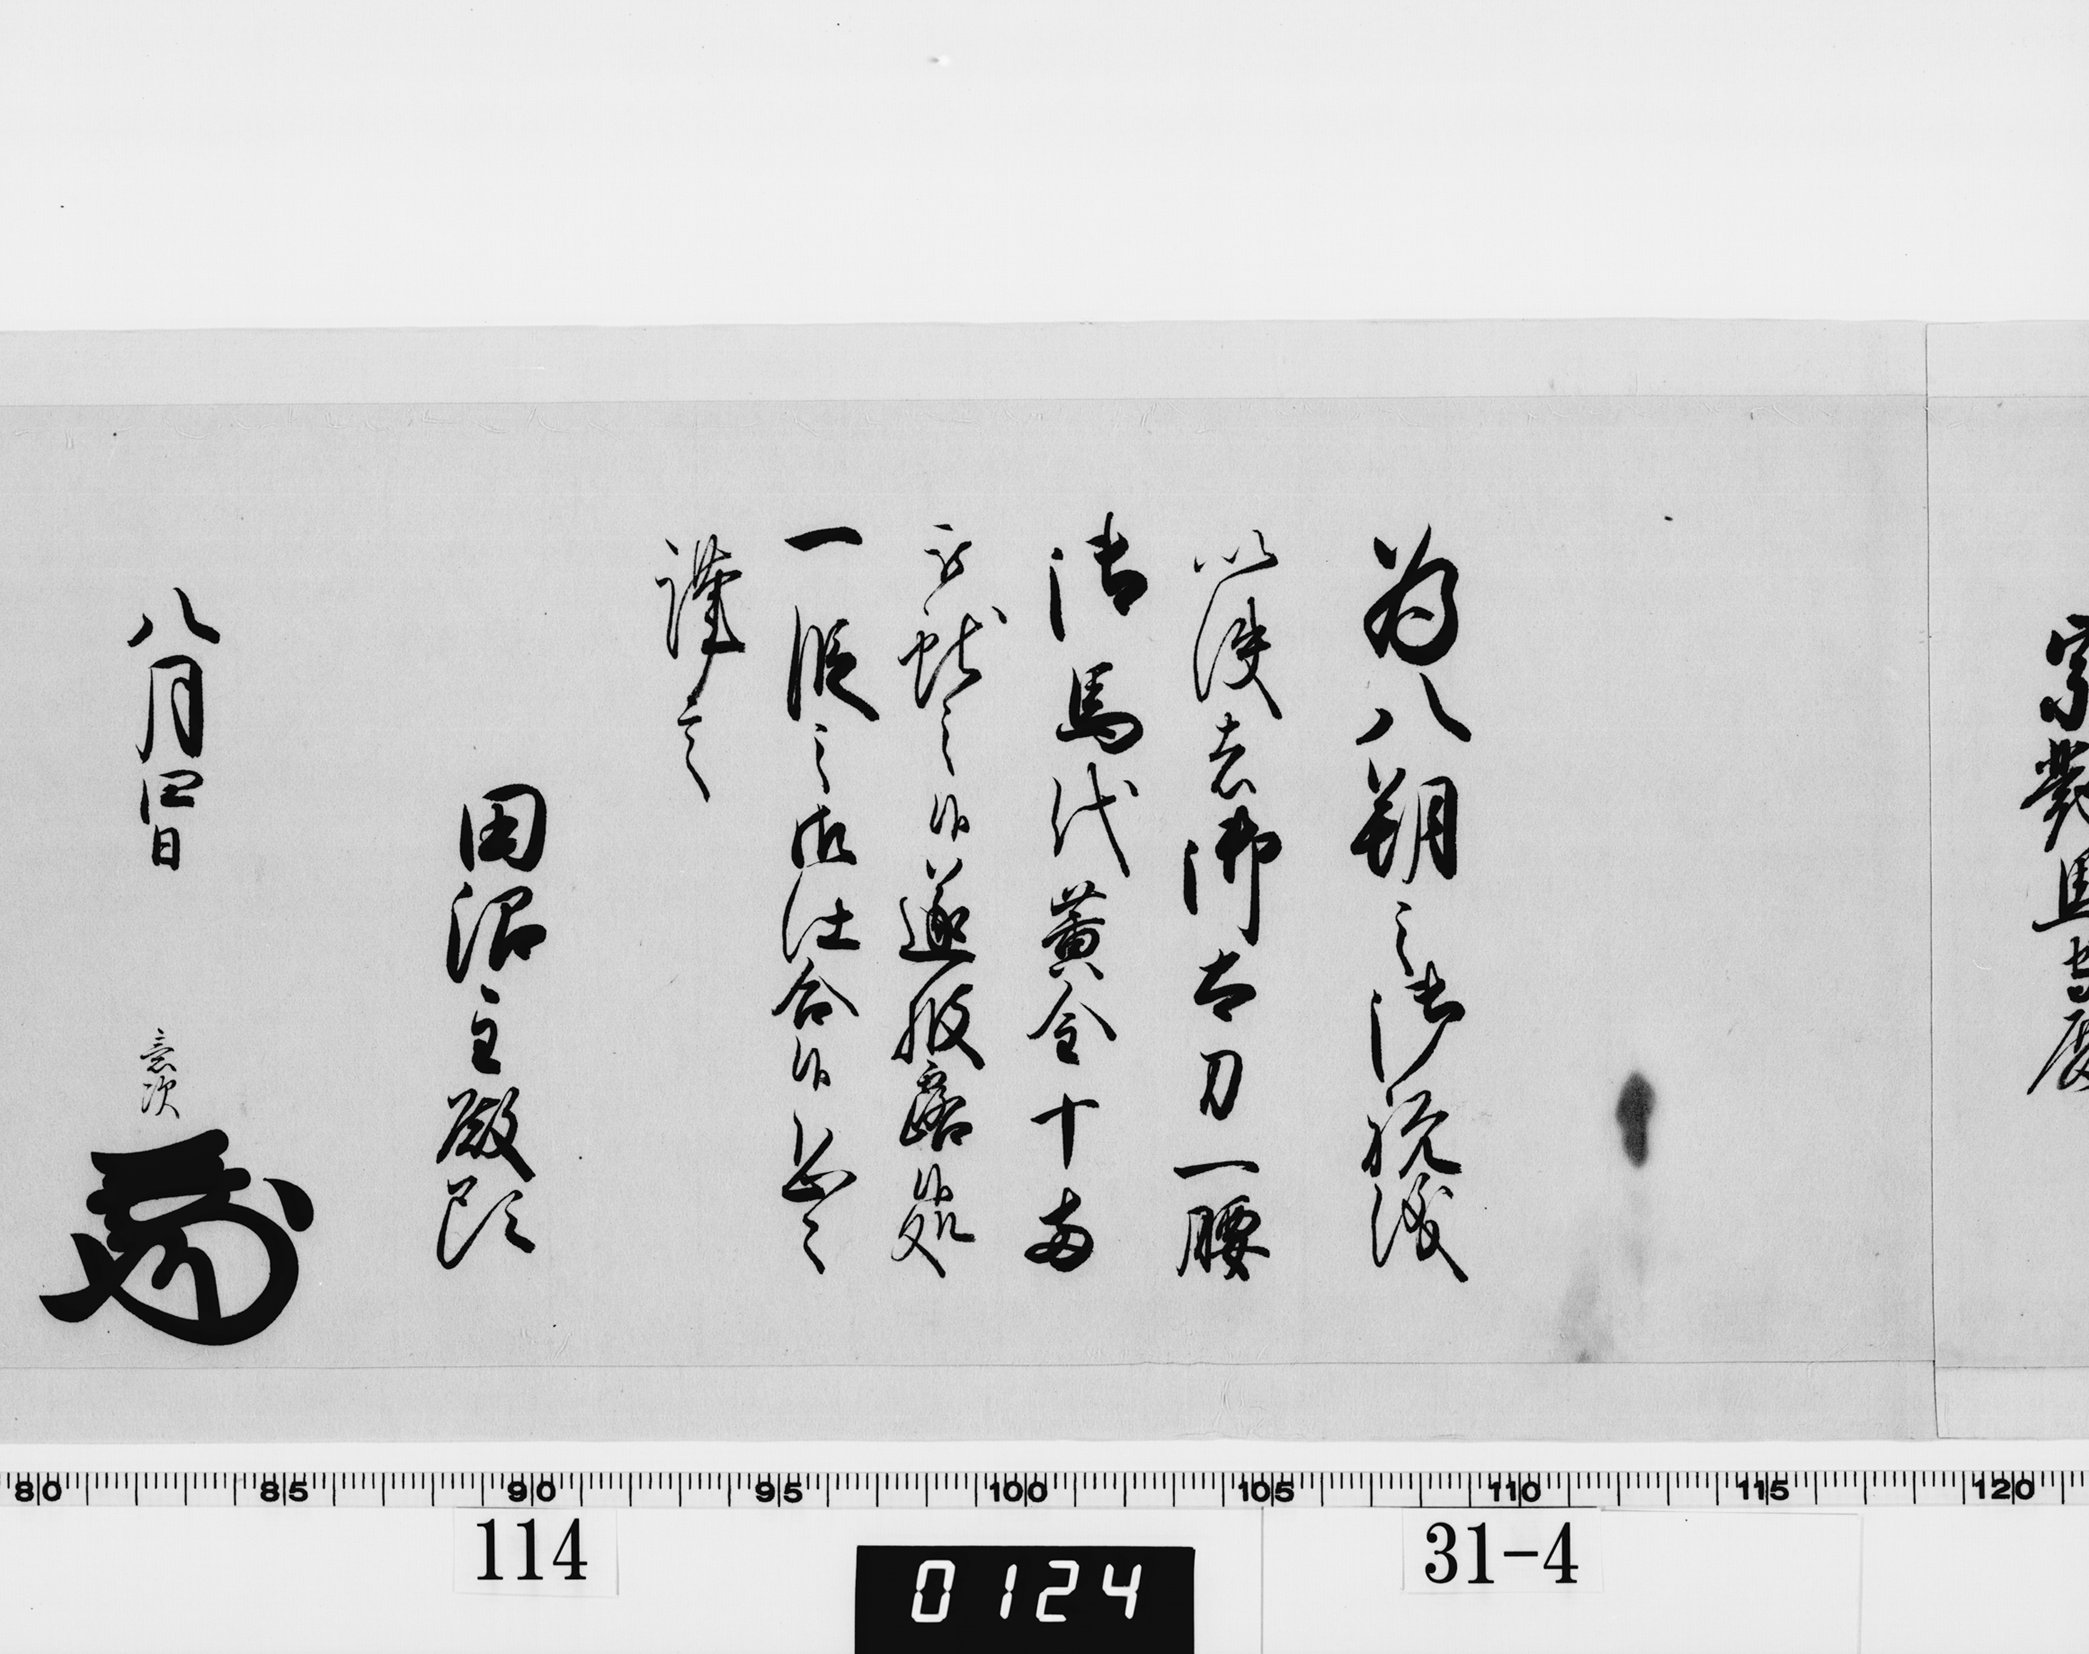 宗對馬守殿
為八朔之御祝儀
以使者御太刀一腰
御馬代黄金十両
被献之候遂披露候処
一段之御仕合候恐々
謹言
田沼主殿頭
八月四日
意次
80 85 90 95 100 105 110 115 120
114
31-4
0124